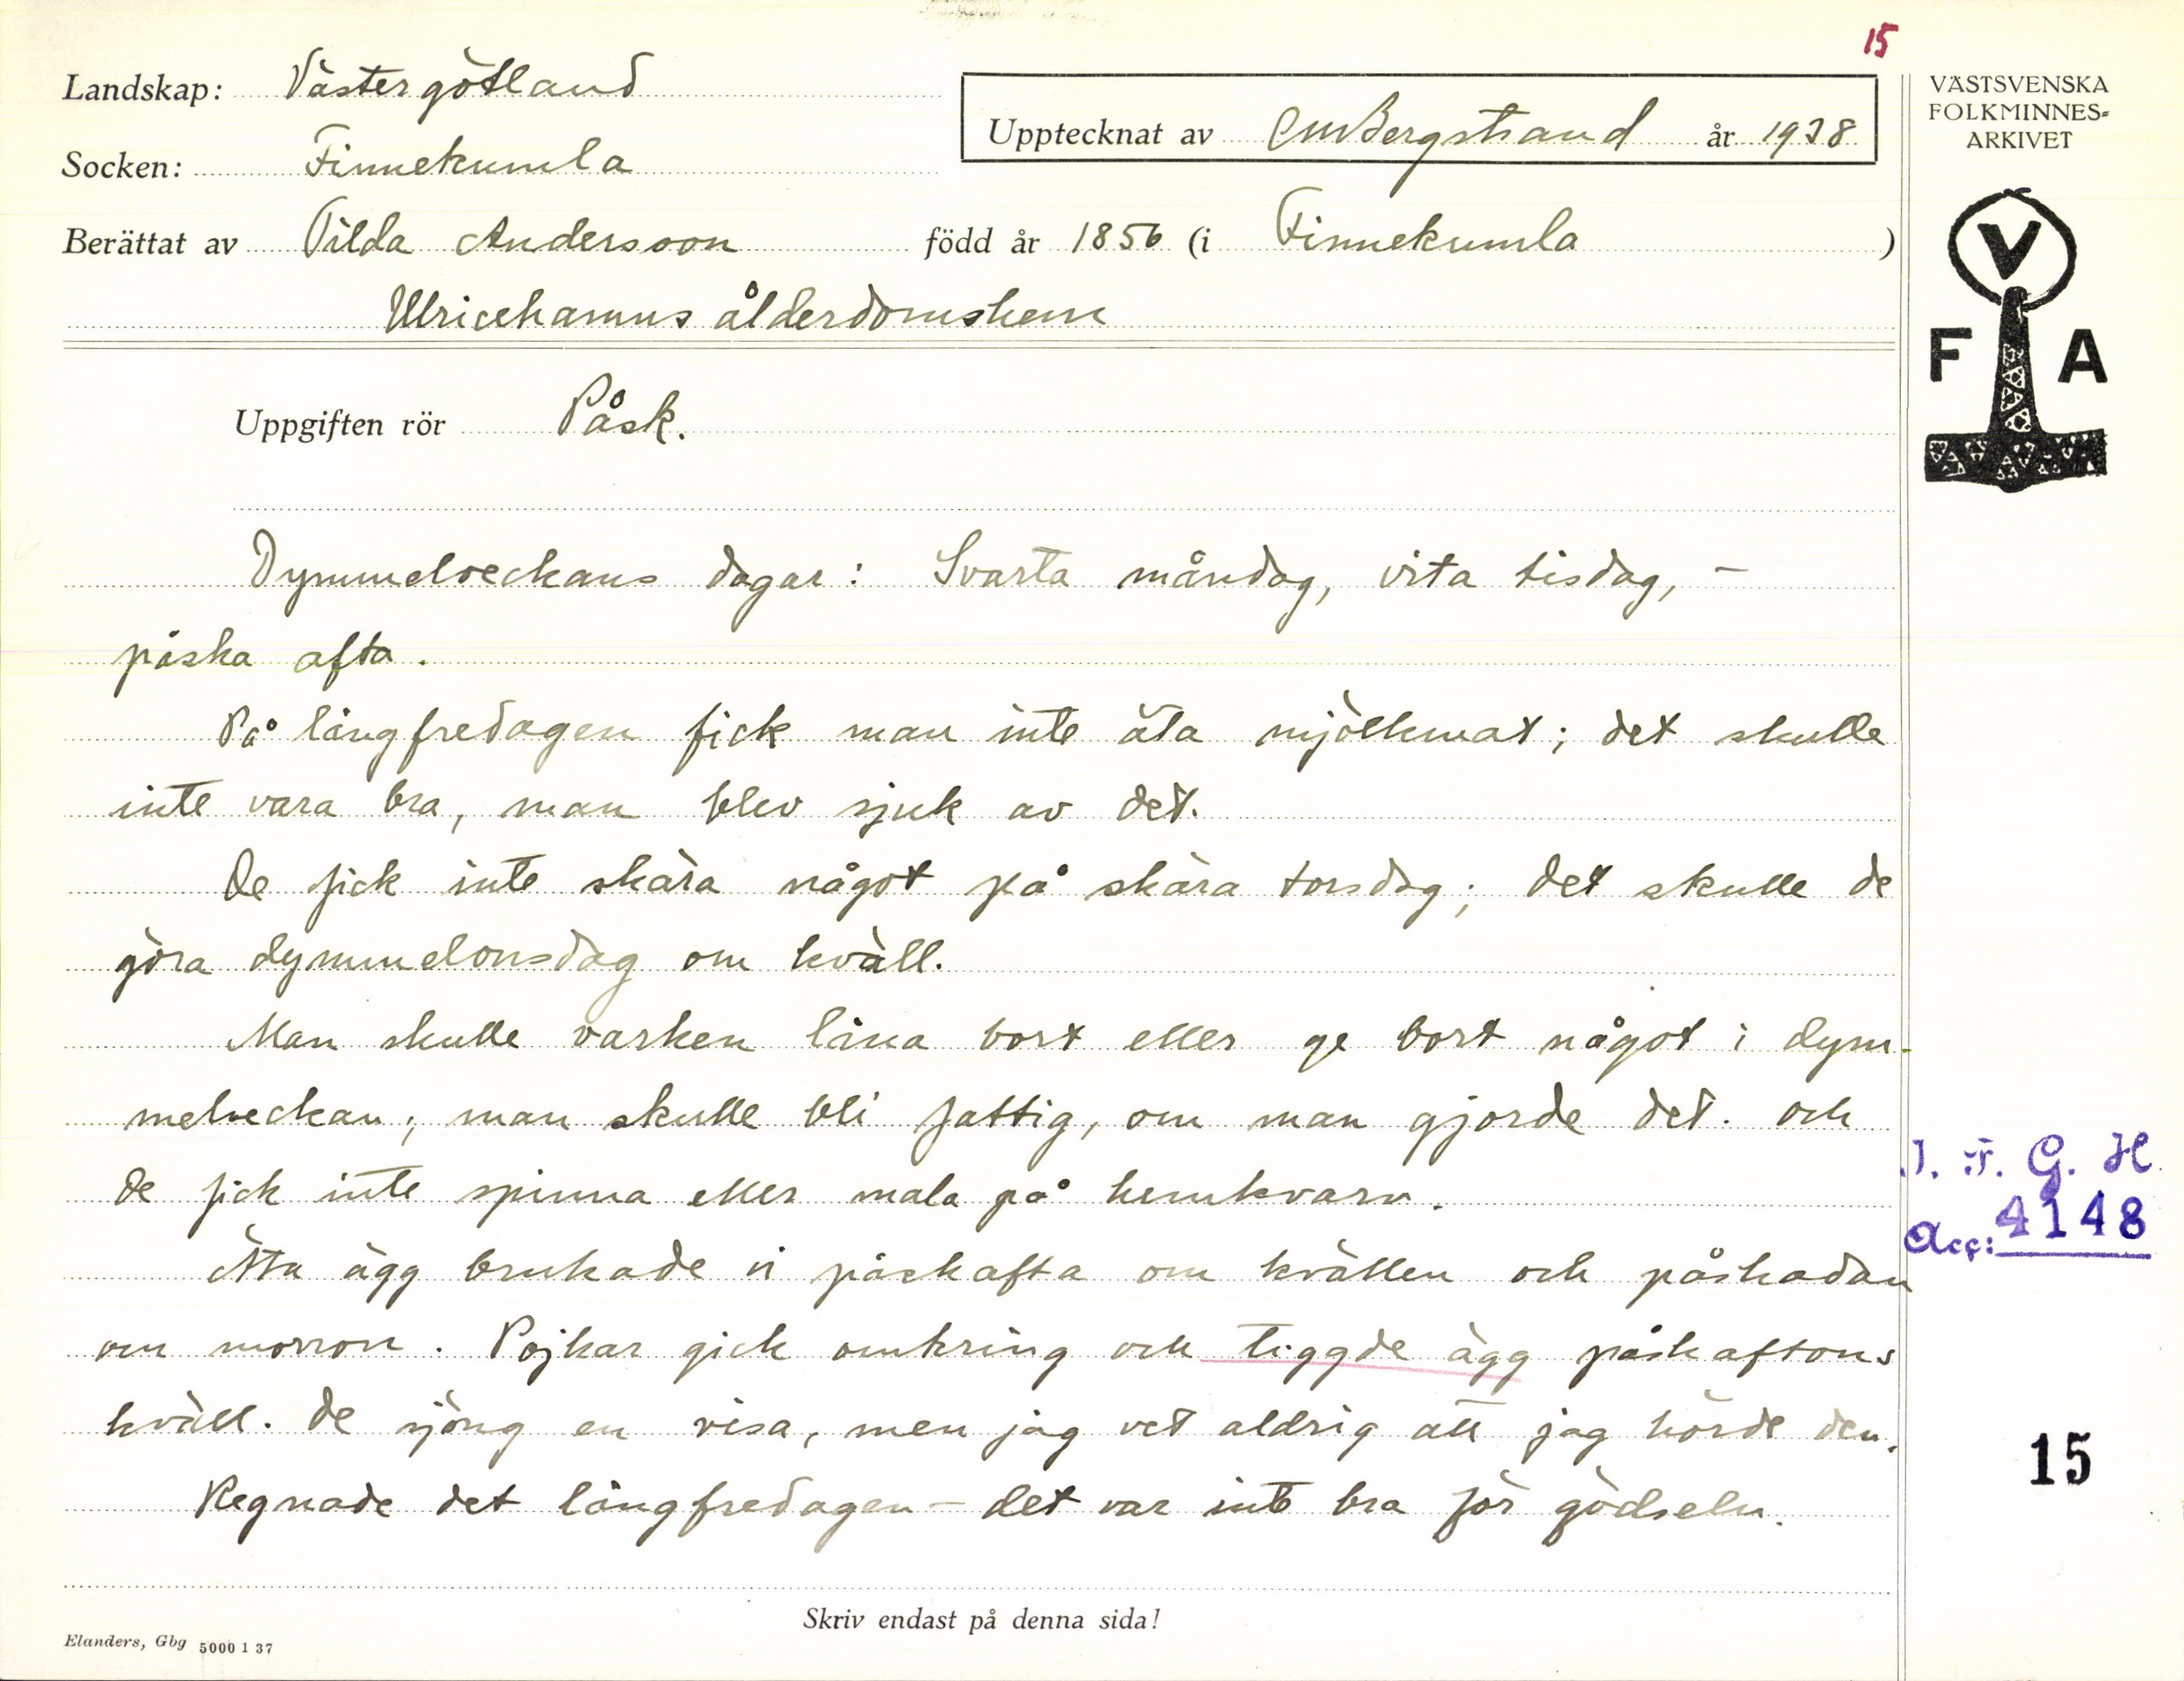 15
Landskap: Västergötland
Socken: Finnekumla
Upptecknat av CMBergstrand år 1938
Berättat av Tilda Andersson född år 1856 (i Finnekumla)
Ulricehamns ålderdomshem
Uppgiften rör Påsk.
Dymmelveckans dagar: Svarta måndag, vita tisdag, –
påska afta.
På långfredagen fick man inte äta mjölkmat; det skulle
inte vara bra, man blev sjuk av det.
De fick inte skära något på skära torsdag; det skulle de
göra dymmelonsdag om kväll.
Man skulle varken låna bort eller ge bort något i dym-
melveckan; man skulle bli fattig, om man gjorde det. och
de fick inte spinna eller mala på hemkvarn.
Äta ägg brukade vi påskafta om kvällen och påskadan
om morron. Pojkar gick omkring och tiggde ägg påskaftons
kväll. De sjöng en visa, men jag vet aldrig att jag hörde den.
Regnade det långfredagen – det var inte bra för gödseln.
Skriv endast på denna sida!
Elanders, Gbg 5000 1 37
VÄSTSVENSKA
FOLKMINNES-
ARKIVET
V
F A
I. F. G. H.
Acc: 4148
15